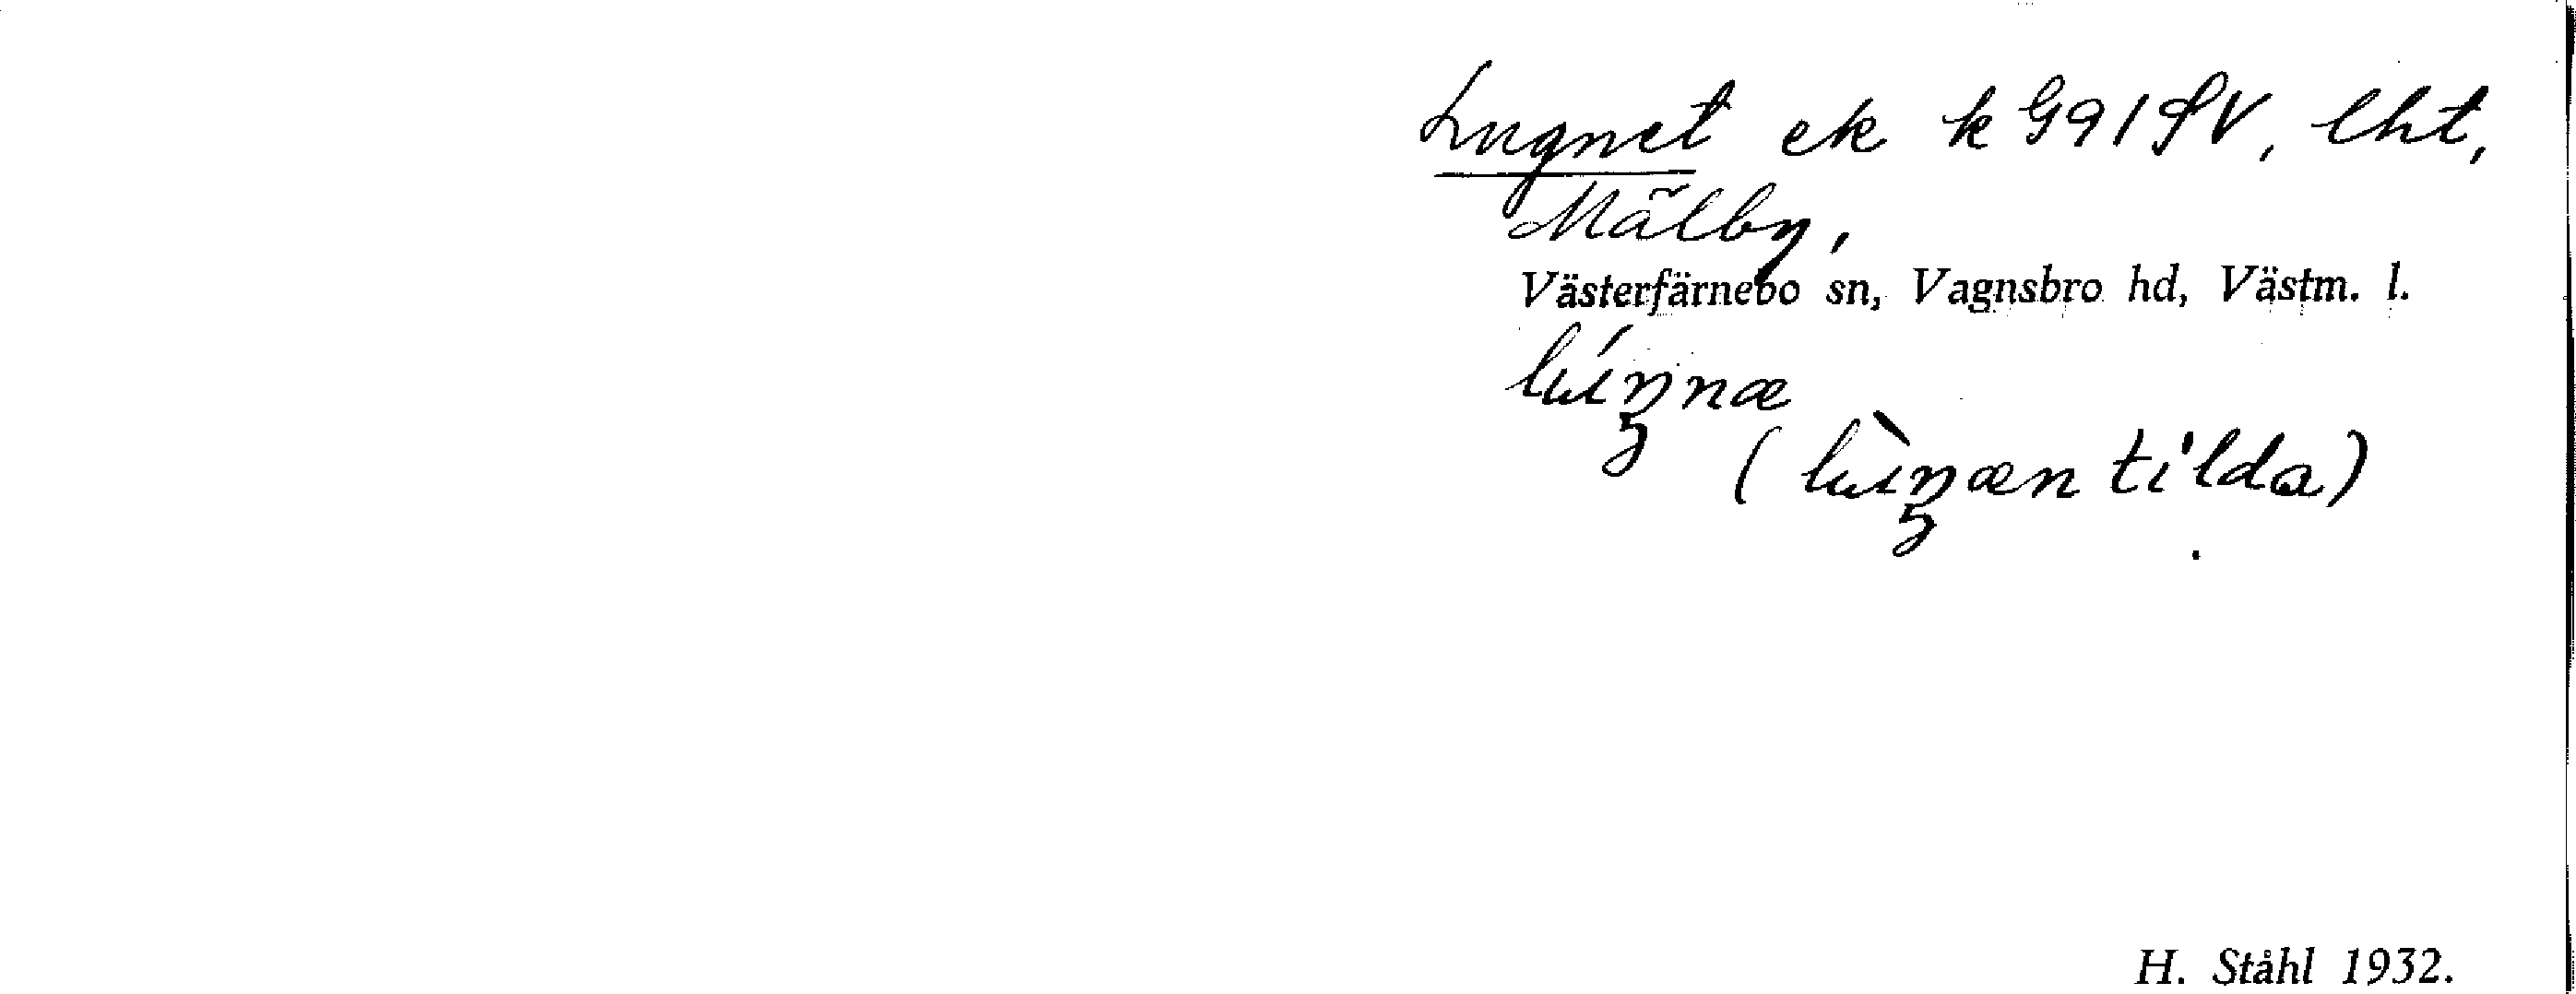 Lugnet ek k G91SV, lht,
Mälby,
Västerfärnebo sn, Vagnsbro hd, Västm. l.
lúŋnæ
(lùŋæn tilda)
H. Ståhl 1932.